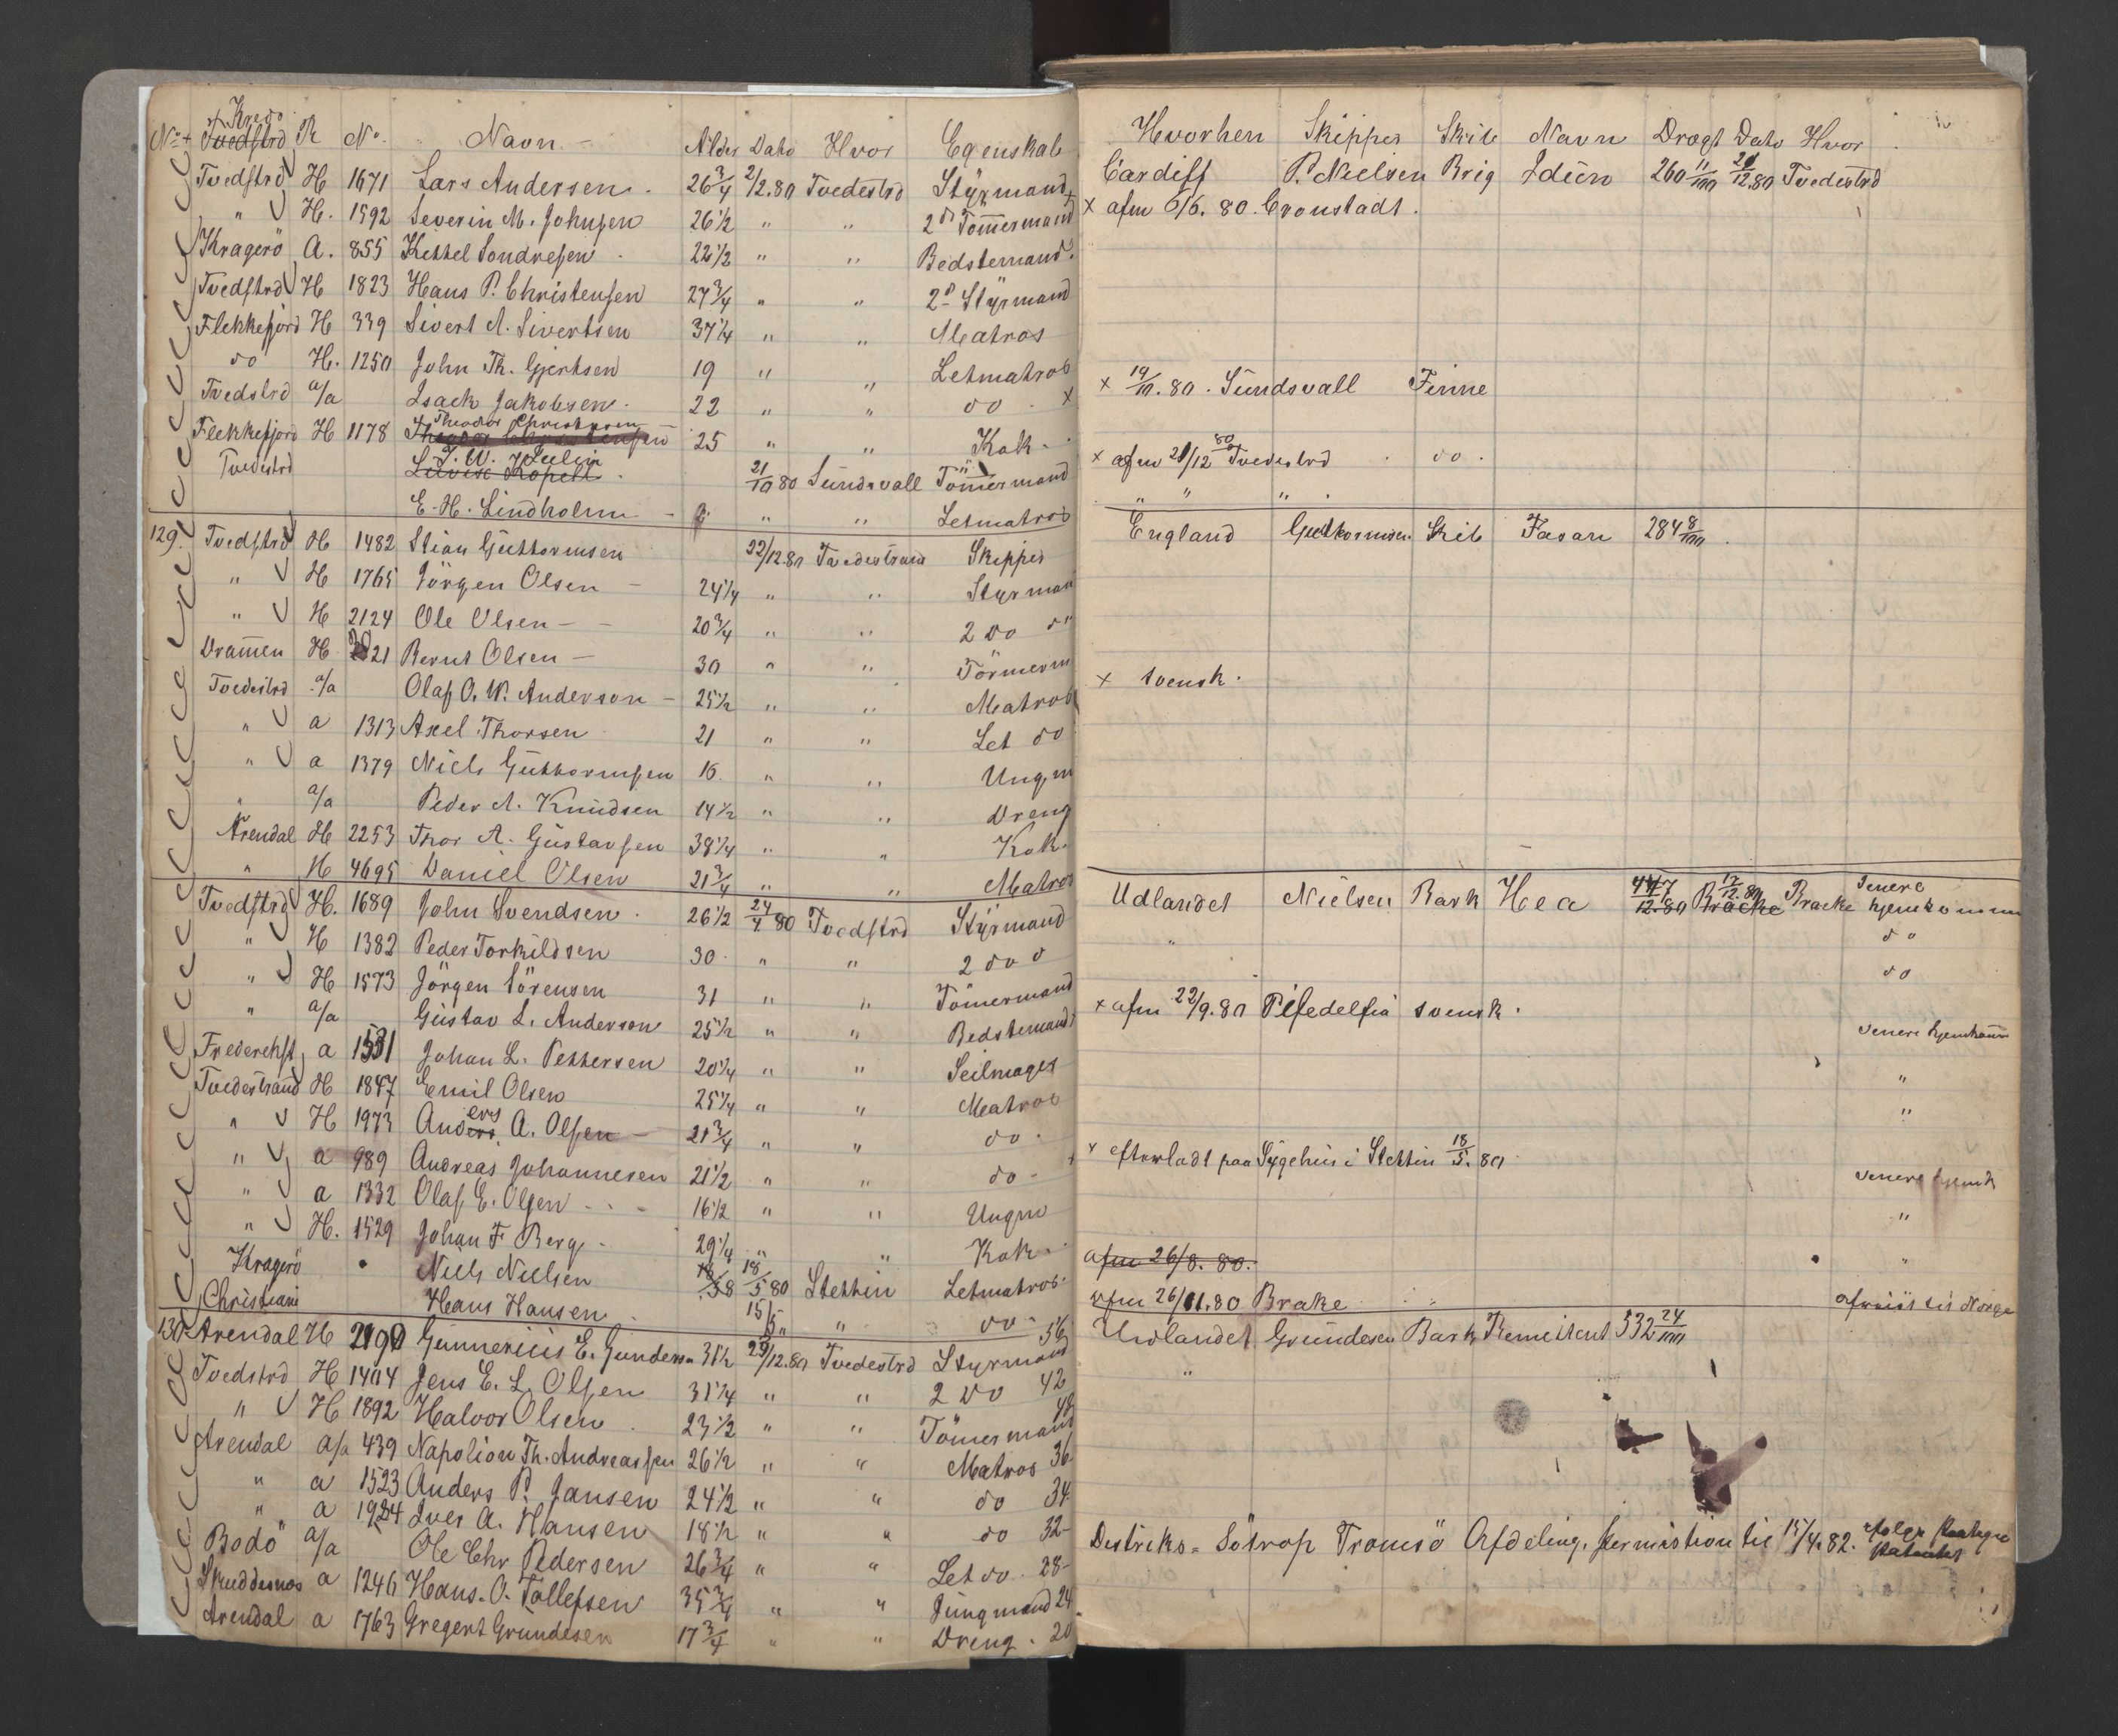 af Kredo
No Tvedstrd R No. Navn Alder Dato Hvor Egenskab Hvorhen Skipper Skib Navn Drægt Dato Hvor
Tvedstrd H 1671 Lars Andersen 26 3/4 2/2.80 Tvedestrd Styrmand Cardiff P. Nielsen Brig Idun 260 11/100 21/12.80 Tvedestrd
" H. 1592 Severin M. Johnsen 26 1/2 " " 2d Tömmermand x afm 6/6. 80. Cronstadt.
Kragerö A. 855 Kettel Sondresen 22 1/2 " " Bedstemand.
Tvedstrd H 1823 Hans P. Christensen 27 3/4 " " 2d Styrmand
Flekkefjord H 339 Sivert A. Sivertsen 37 1/4 " " Matros
do H. 1250 John Th. Gjertsen 19 " " Letmatros
Tvedstrd a/a Isack Jakobsen 22 " " do x x 19/10. 80. Sundsvall Finne
Flekkefjord H 1178 Theodor Christensen 25 " " Kok
Tvedestrd J. W. Julin 21/10 80 Sundsvall Tömmermand x afm 21/12 80 Tvedestrd do.
E. H. Lindholm " " Letmatros " " "
129. Tvedstrd H 1482 Stian Guttormsen 22/12.80 Tvedestrand Skipper England Guttormsen Skib Fasan 284 8/100
" H 1765 Jörgen Olsen 24 1/4 " " Styrman
" H 2124 Ole Olsen 20 3/4 " " 2 do do
Drammen H 21 Bernt Olsen 30 " " Tömerm
Tvedestrd a/a Olaf O. W. Anderson 25 1/2 " " Matros x svensk.
" a 1313 Axel Thorsen 21 " " Let do
" a 1379 Niels Guttormsen 16. " " Ungm
" a/a Peder A. Knudsen 14 1/2 " " Dreng
Arendal H 2253 Thor A. Gustavsen 38 1/4 " " Kok.
" H 4695 Daniel Olsen 21 3/4 " " Matros
Tvedstrd H. 1689 John Svendsen 26 1/2 24/4 80 Tvedstrd Styrmand Udlandet Nielsen Bark Hea 447 12.80 Bracke 17/12.80 Bracke senere hjemkommen
" H 1382 Peder Torkildsen 30 " " 2 do do " do
" H 1573 Jörgen Sörensen 31 " " Tömermand do
" a/a Gustav L. Anderson 25 1/2 " " Bedstemand x afm 22/9.80 Pifedelfia svensk.
Frederekst a 1531 Johan L. Pettersen 20 1/4 " " Seilmager senere hjemkomm
Tvedestrand H 1847 Emil Olsen 25 1/4 " " Matros "
" H 1973 Anders A. Olsen 21 3/4 " " do. "
" a 989 Andreas Johannesen 21 1/2 " " do x efterladt paa Sygehus i Stettin 18/5. 80
" a 1332 Olaf E. Olsen 16 1/2 " " Ungm senere hjemk
" H. 1529 Johan F Berg 29 1/4 " " Kok "
Kragerö Niels Nielsen 18/5 80 Stettin Letmatros. afm 26/8. 80. "
Christiani Hans Hansen 15/5 " " do afm 26/11.80 Brake afreist til Norge
130 Arendal H 2190 Gunnerius E. Gunderse 31 1/2 23/12.80 Tvedestrd Styrmand 56 Udlandet Grundesen Bark Remeitent 532 24/100
Tvedstrd H 1404 Jens E. L. Olsen 31 1/4 " " 2 do 42 "
" H 1892 Halvor Olsen 23 1/2 " " Tömermand 48
Arendal a/a 439 Napolion Th. Andreassen 26 1/2 " " Matros 36
" a 1523 Anders P. Jansen 24 1/2 " " do 34
" a 1924 Iver A. Hansen 18 1/2 " " do 32
Bodö a/a Ole Chr Pedersen 26 3/4 " " Let do 28 Distriks = Sötrop Tromsö Afdeling. permistion til 15/4.82. ifölge
Skuddesnes a 1246 Hans. O. Tollefsen 35 3/4 " " Jungmand 24
Arendal a 1763 Gregert Grundesen 17 3/4 " " Dreng. 20